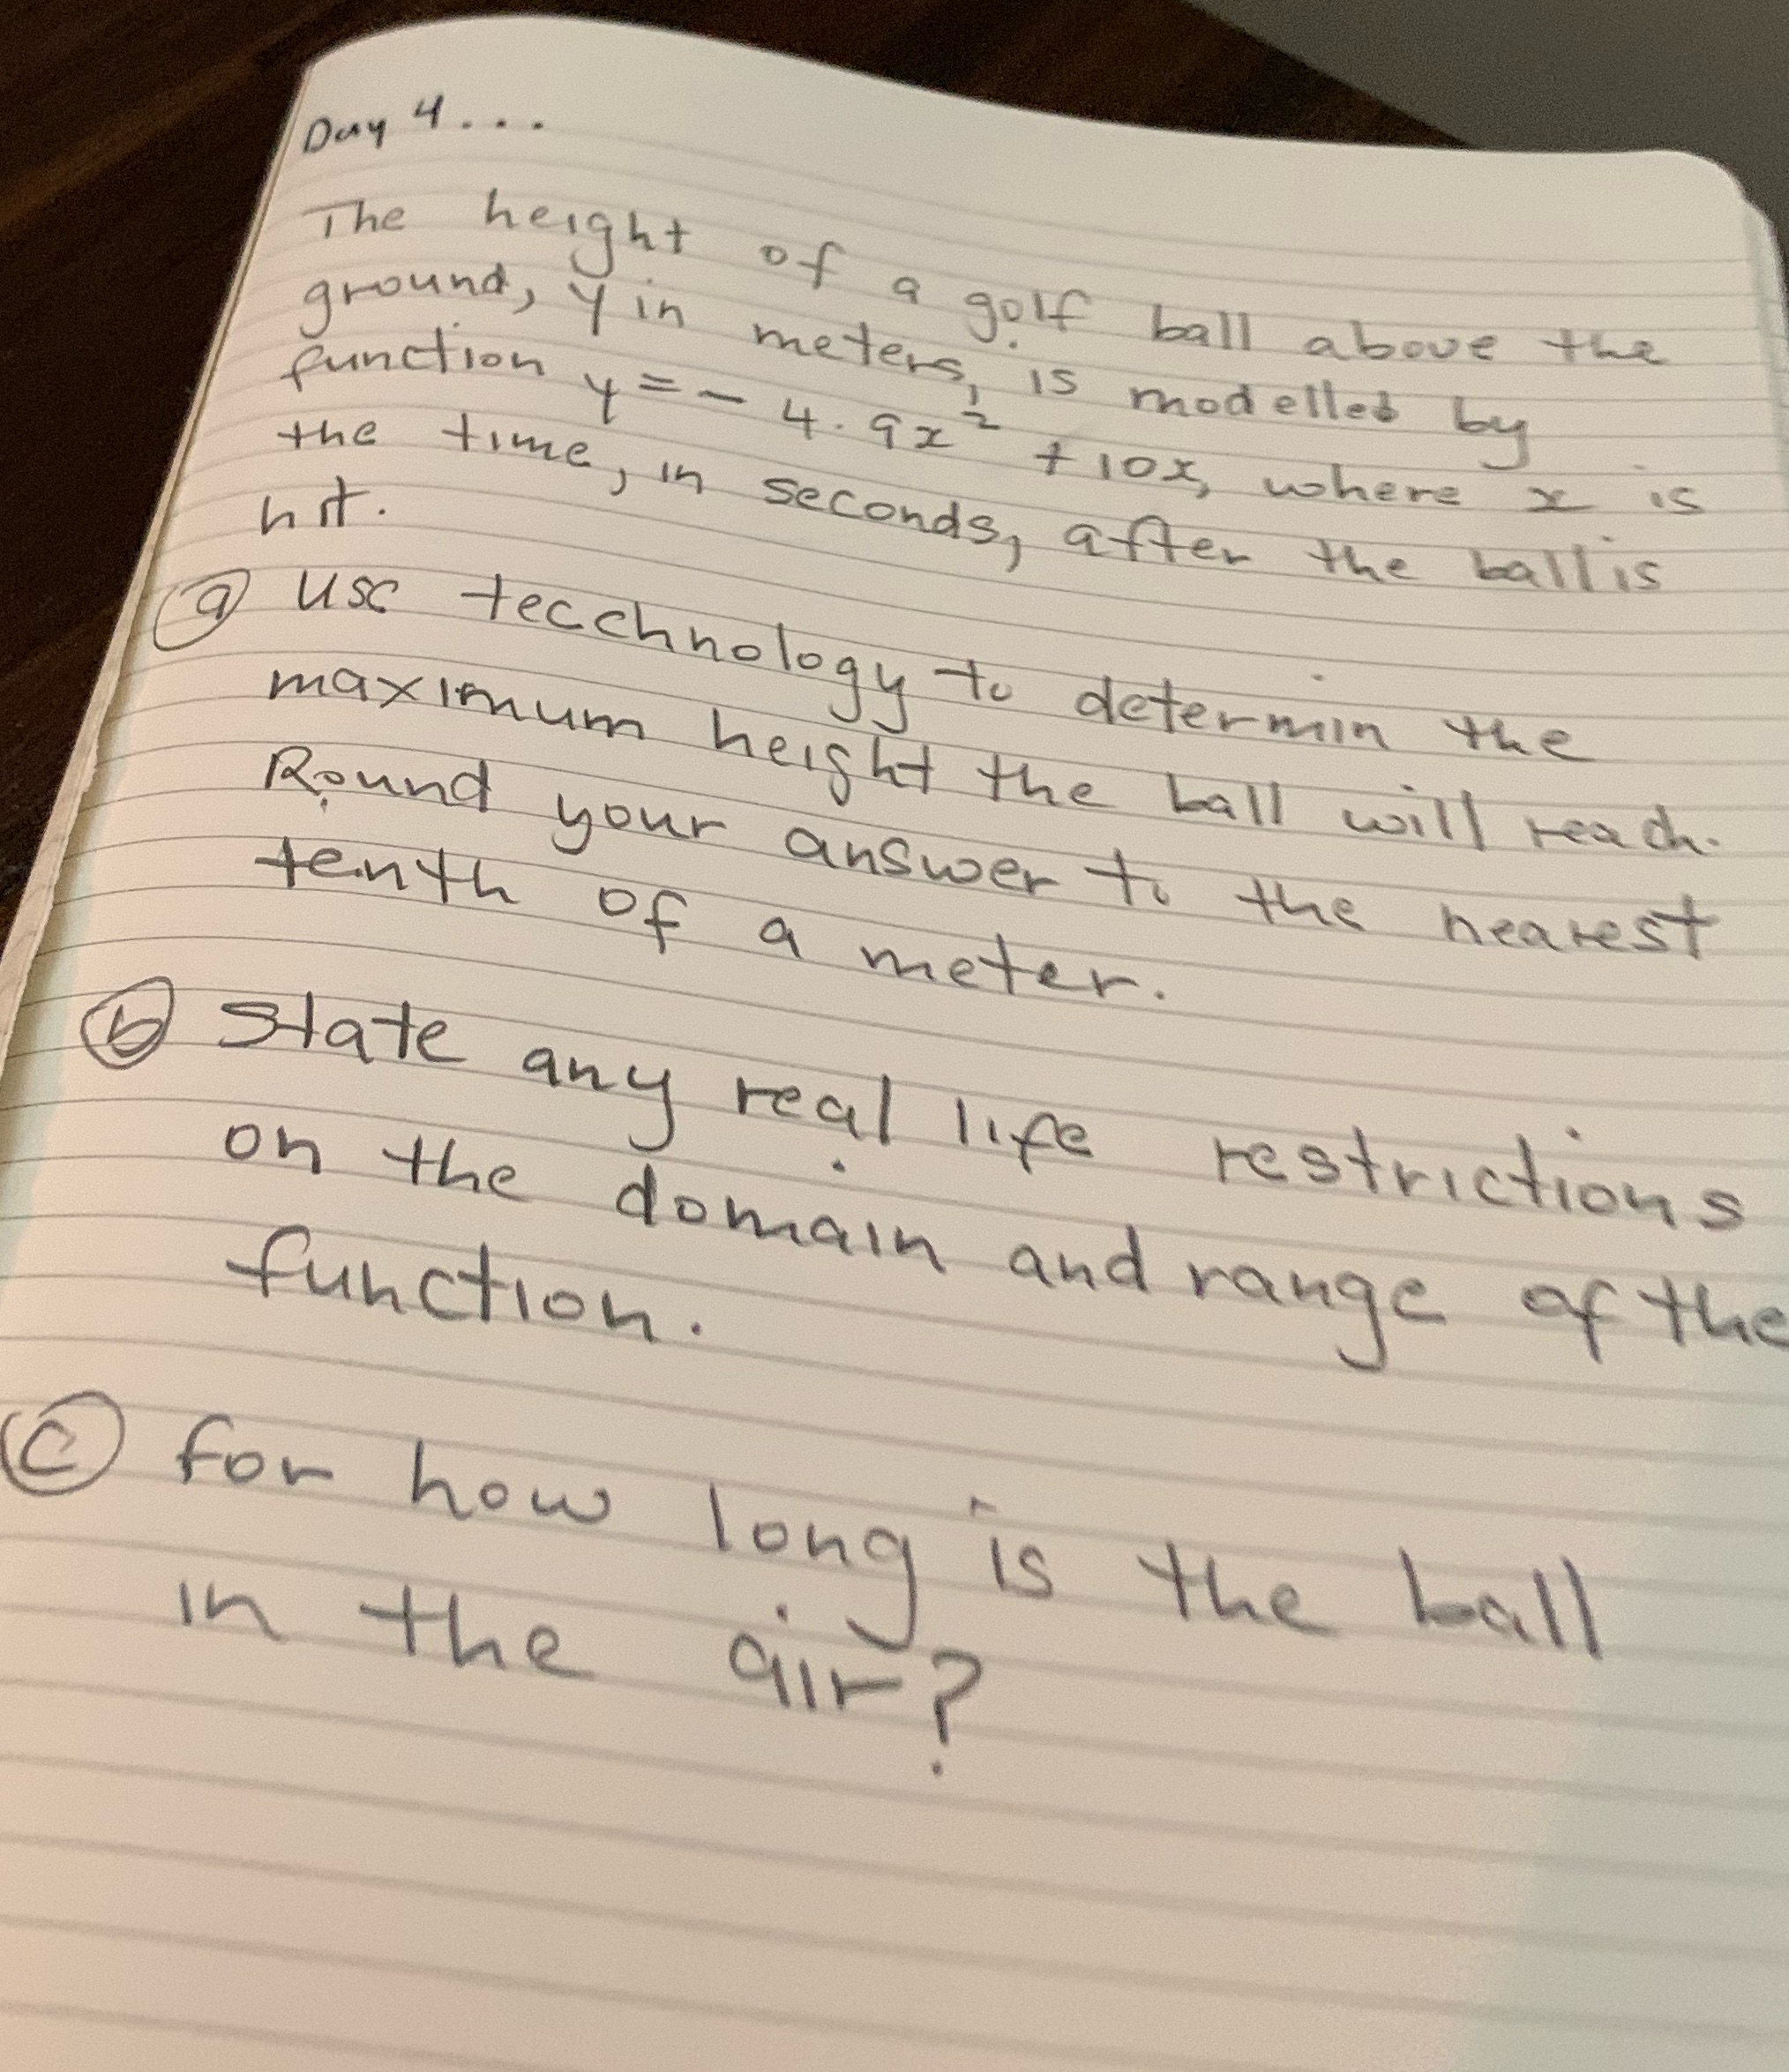 Day 4...
The height of a golf ball above the
ground, y in meters, is modelled by
function y = - 4.9x² + 10x, where x is
the time, in seconds, after the ball is
hit.
(a) use tecchnology to determin the
maximum height the ball will reach.
Round your answer to the nearest
tenth of a meter.
(b) State any real life restrictions
on the domain and range of the
function.
(c) for how long is the ball
in the air?